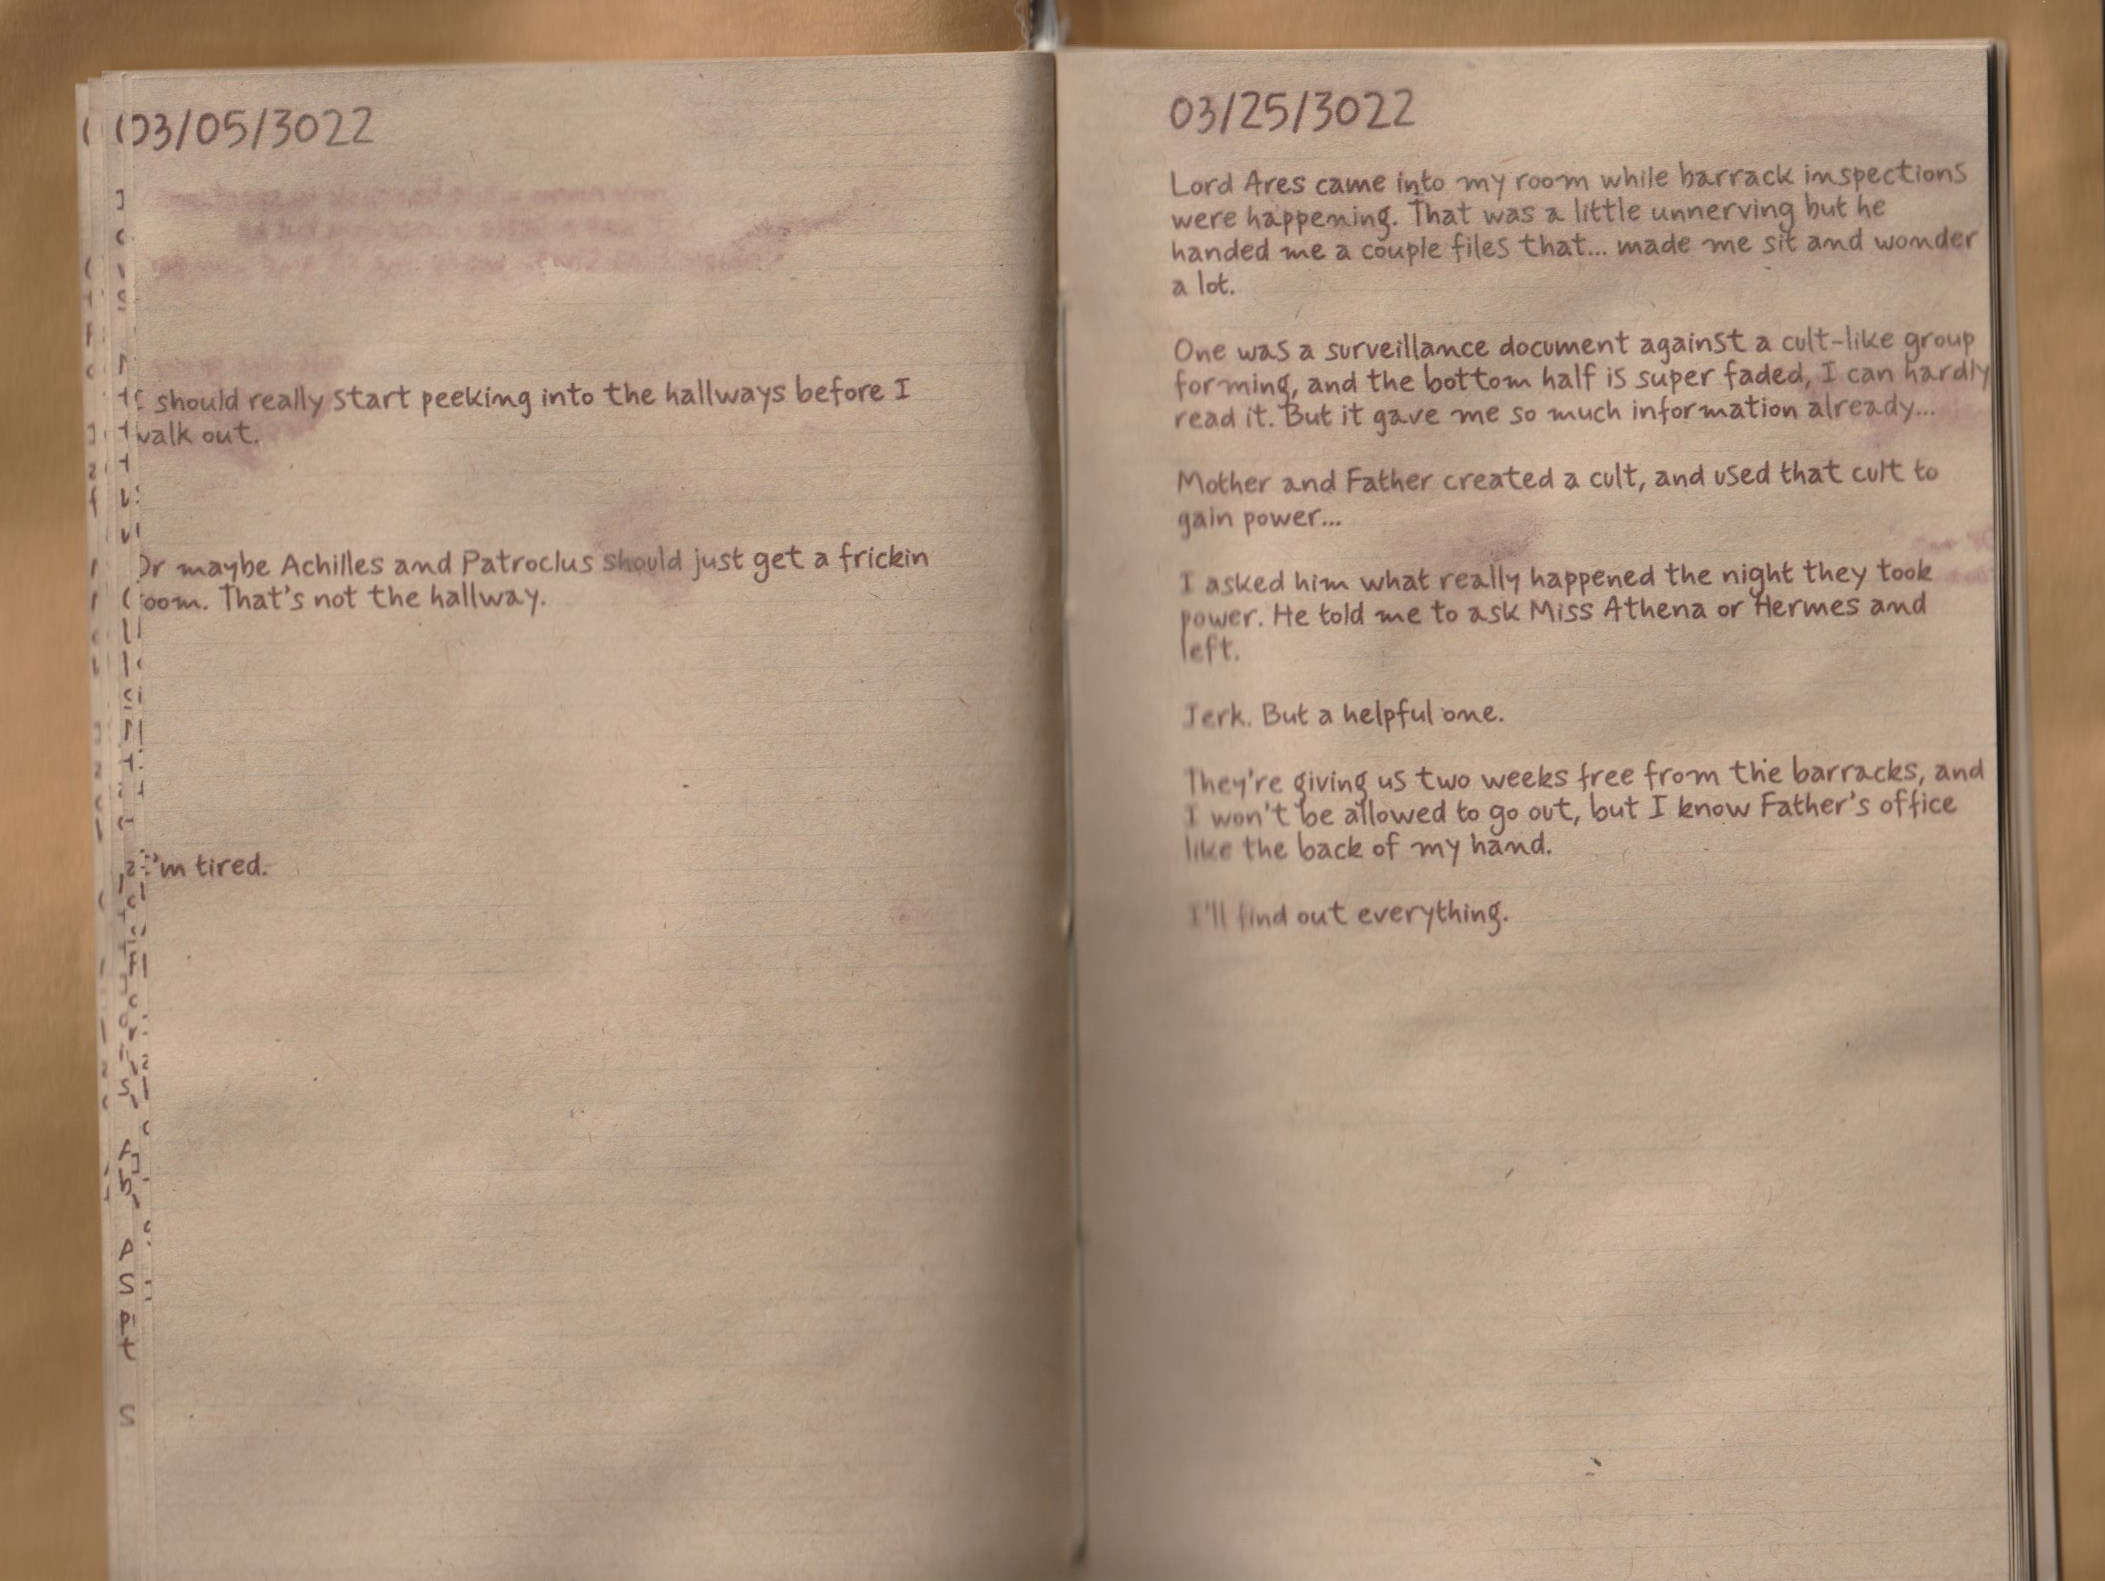 03/05/3022
I should really start peeking into the hallways before I
walk out.
Or maybe Achilles and Patroclus should just get a frickin
room. That's not the hallway.
I'm tired.
03/25/3022
Lord Ares came into my room while barrack inspections
were happening. That was a little unnerving but he
handed me a couple files that... made me sit and wonder
a lot.
One was a surveillance document against a cult-like group
forming, and the bottom half is super faded, I can hardly
read it. But it gave me so much information already...
Mother and Father created a cult, and used that cult to
gain power...
I asked him what really happened the night they took
power. He told me to ask Miss Athena or Hermes and
left.
Jerk. But a helpful one.
They're giving us two weeks free from the barracks, and
I won't be allowed to go out, but I know Father's office
like the back of my hand.
I'll find out everything.